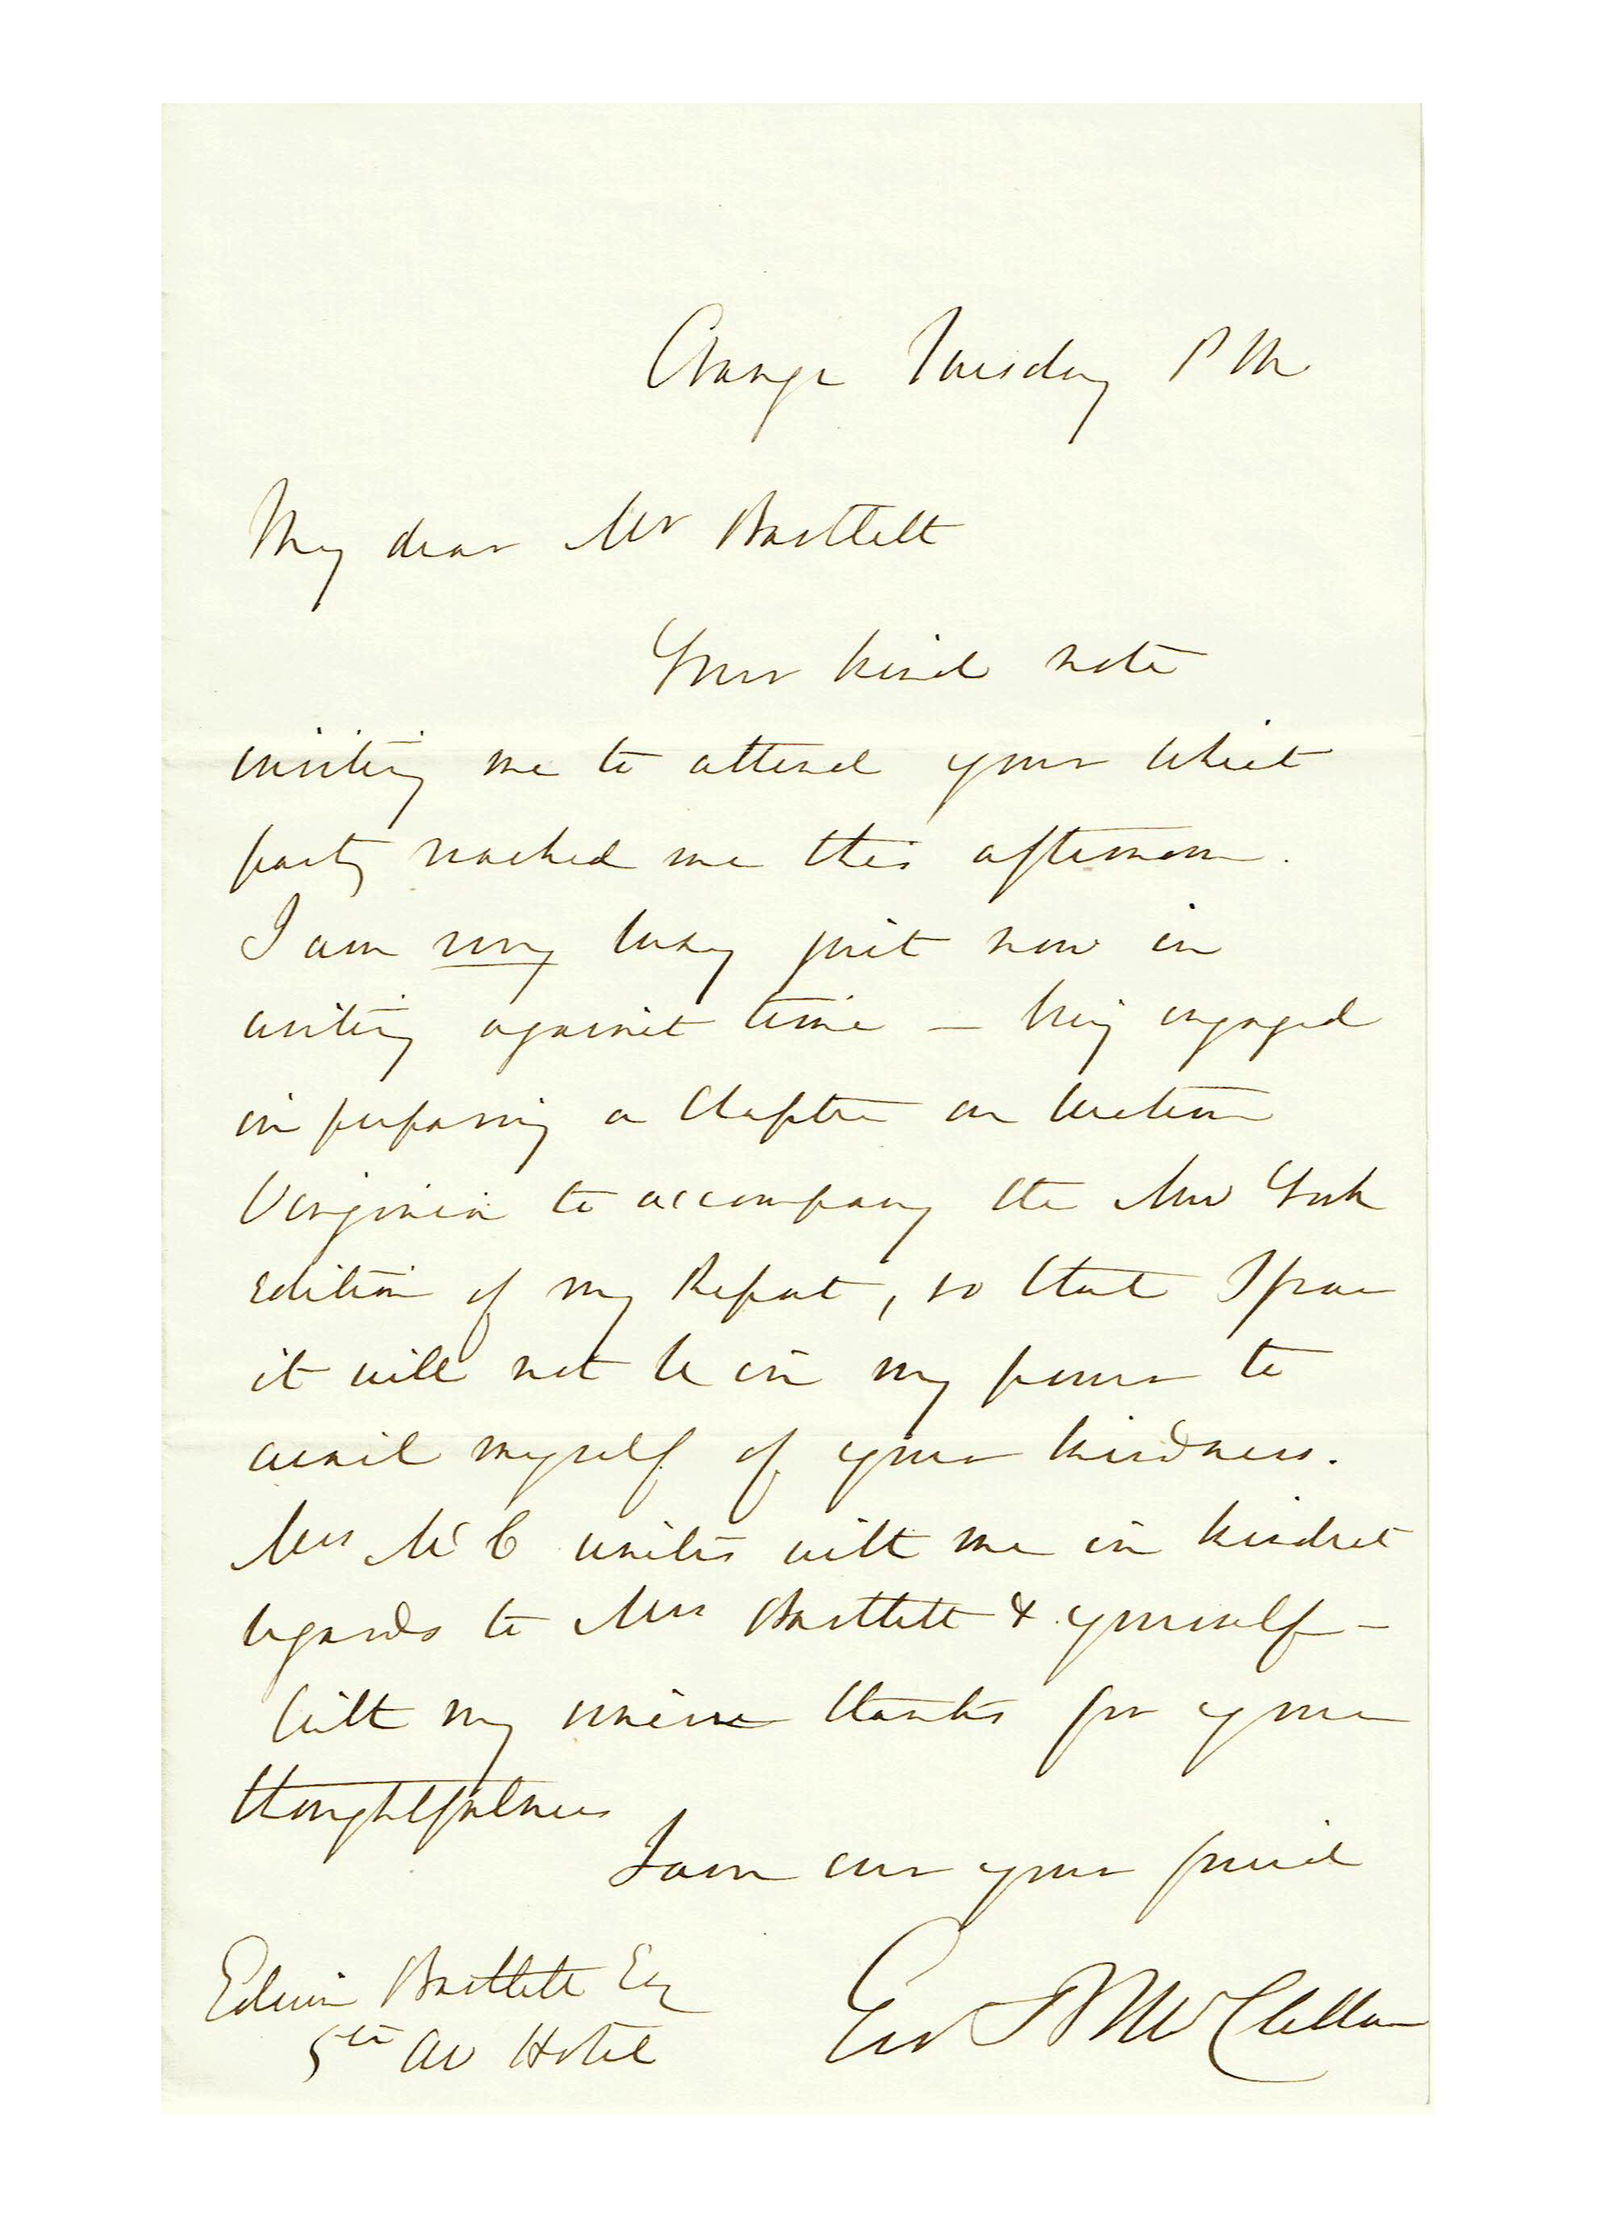 Orange Tuesday PM
My dear Mr Bartlett
Your kind note
inviting me to attend your whist
party reached me this afternoon.
I am very busy just now in
writing against time — being engaged
in preparing a Chapter on Western
Virginia to accompany the New York
edition of my Report, so that I fear
it will not be in my power to
avail myself of your kindness.
Mrs McC unites with me in kindest
regards to Mrs Bartlett & yourself —
With my sincere thanks for your
thoughtfulness
I am ever your friend
Geo B McClellan
Edwin Bartlett Esq
5th Av Hotel